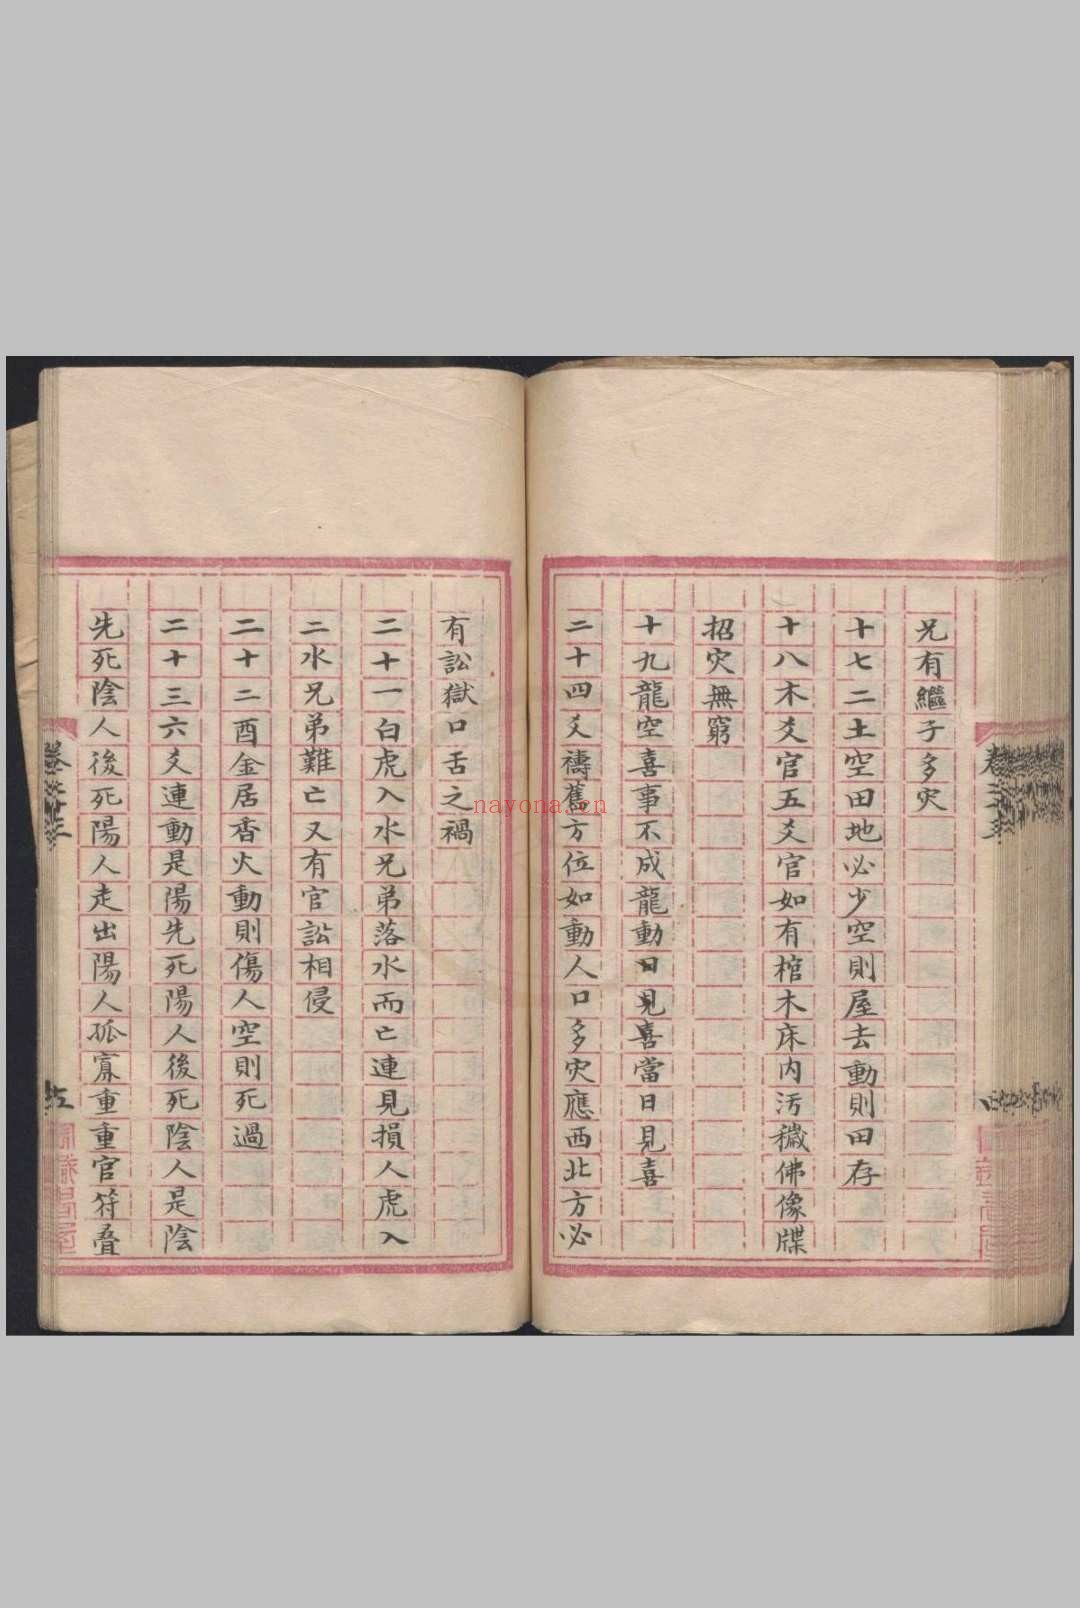 兄有繼子多灾
十七二土空田地必少空則屋去動則田存
十八木爻官五爻官如有棺木床内汚穢佛像牒
招灾無窮
十九龍空喜事不成龍動日見喜當日見喜
二十四爻禱舊方位如動人口多灾應西北方必
有訟獄口舌之禍
二十一白虎入水兄弟落水而亡連見損人虎入
二水兄弟難亡又有官訟相侵
二十二酉金居香火動則傷人空則死過
二十三六爻連動是陽先死陽人後死陰人是陰
先死陰人後死陽人走出陽人孤寡重重官符疊
nayona.cn